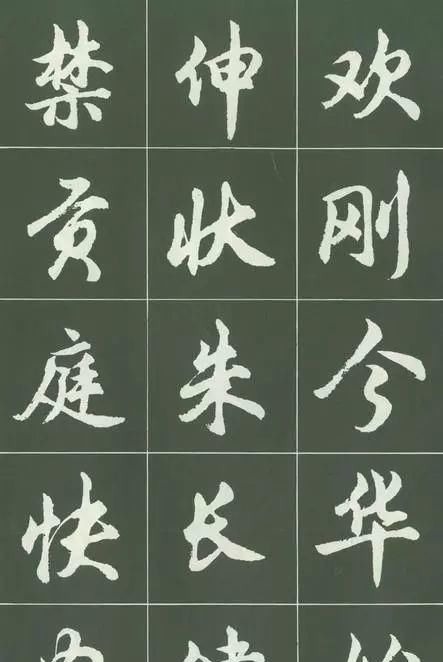 禁伸欢
贡状刚
庭朱今
快长华